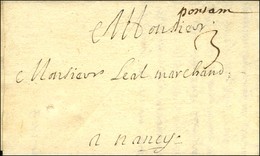 ponsam
Monsieur
3
Monsieur Leal marchand,
a nancy